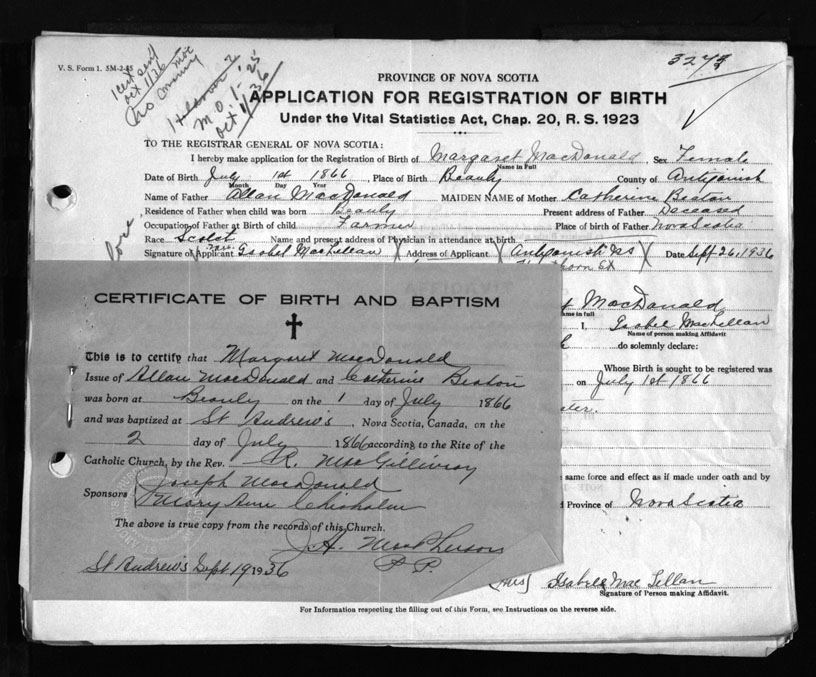 V. S. Form 1. 5M-2-35
Oct 1/36
M.O. 1.25
Oct 1/36
PROVINCE OF NOVA SCOTIA
APPLICATION FOR REGISTRATION OF BIRTH
Under the Vital Statistics Act, Chap. 20, R. S. 1923
TO THE REGISTRAR GENERAL OF NOVA SCOTIA:
I hereby make application for the Registration of Birth of Margaret MacDonald, Sex Female
Name in Full
Date of Birth July 1st 1866 Place of Birth Beauly County of Antigonish
Month Day Year
Name of Father Allan MacDonald MAIDEN NAME of Mother Catherine Beaton
Residence of Father when child was born Beauly Present address of Father Deceased
Occupation of Father at Birth of child Farmer Place of birth of Father Nova Scotia
Race Scotch Name and present address of Physician in attendance at birth
Signature of Applicant Isobel MacLellan Address of Applicant Antigonish NS Date Sept 26, 1936
CERTIFICATE OF BIRTH AND BAPTISM
This is to certify that Margaret MacDonald
Issue of Allan MacDonald and Catherine Beaton
was born at Beauly on the 1 day of July 1866
and was baptized at St Andrew's, Nova Scotia, Canada, on the
2 day of July 1866 according to the Rite of the
Catholic Church, by the Rev. R. MacGillivray
Sponsors Joseph MacDonald
Mary Ann Chisholm
The above is true copy from the records of this Church.
J.A. MacPherson
P.P.
St Andrew's Sept 19 1936
MacDonald
name in full
I, Isobel MacLellan
Name of person making Affidavit
do solemnly declare:
Whose Birth is sought to be registered was
on July 1st 1866
same force and effect as if made under oath and by
Province of Nova Scotia
(Mrs) Isabell MacLellan
Signature of Person making Affidavit.
For Information respecting the filling out of this Form, see Instructions on the reverse side.